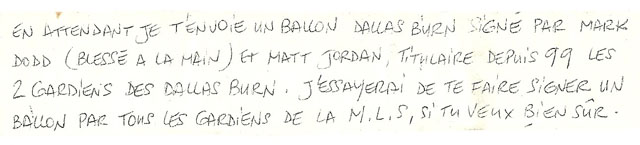 EN ATTENDANT JE T'ENVOIE UN BALLON DALLAS BURN SIGNÉ PAR MARK
DODD (BLESSÉ A LA MAIN) ET MATT JORDAN, TITULAIRE DEPUIS 99 LES
2 GARDIENS DES DALLAS BURN. J'ESSAYERAI DE TE FAIRE SIGNER UN
BALLON PAR TOUS LES GARDIENS DE LA M.L.S, SI TU VEUX BIEN SÛR.